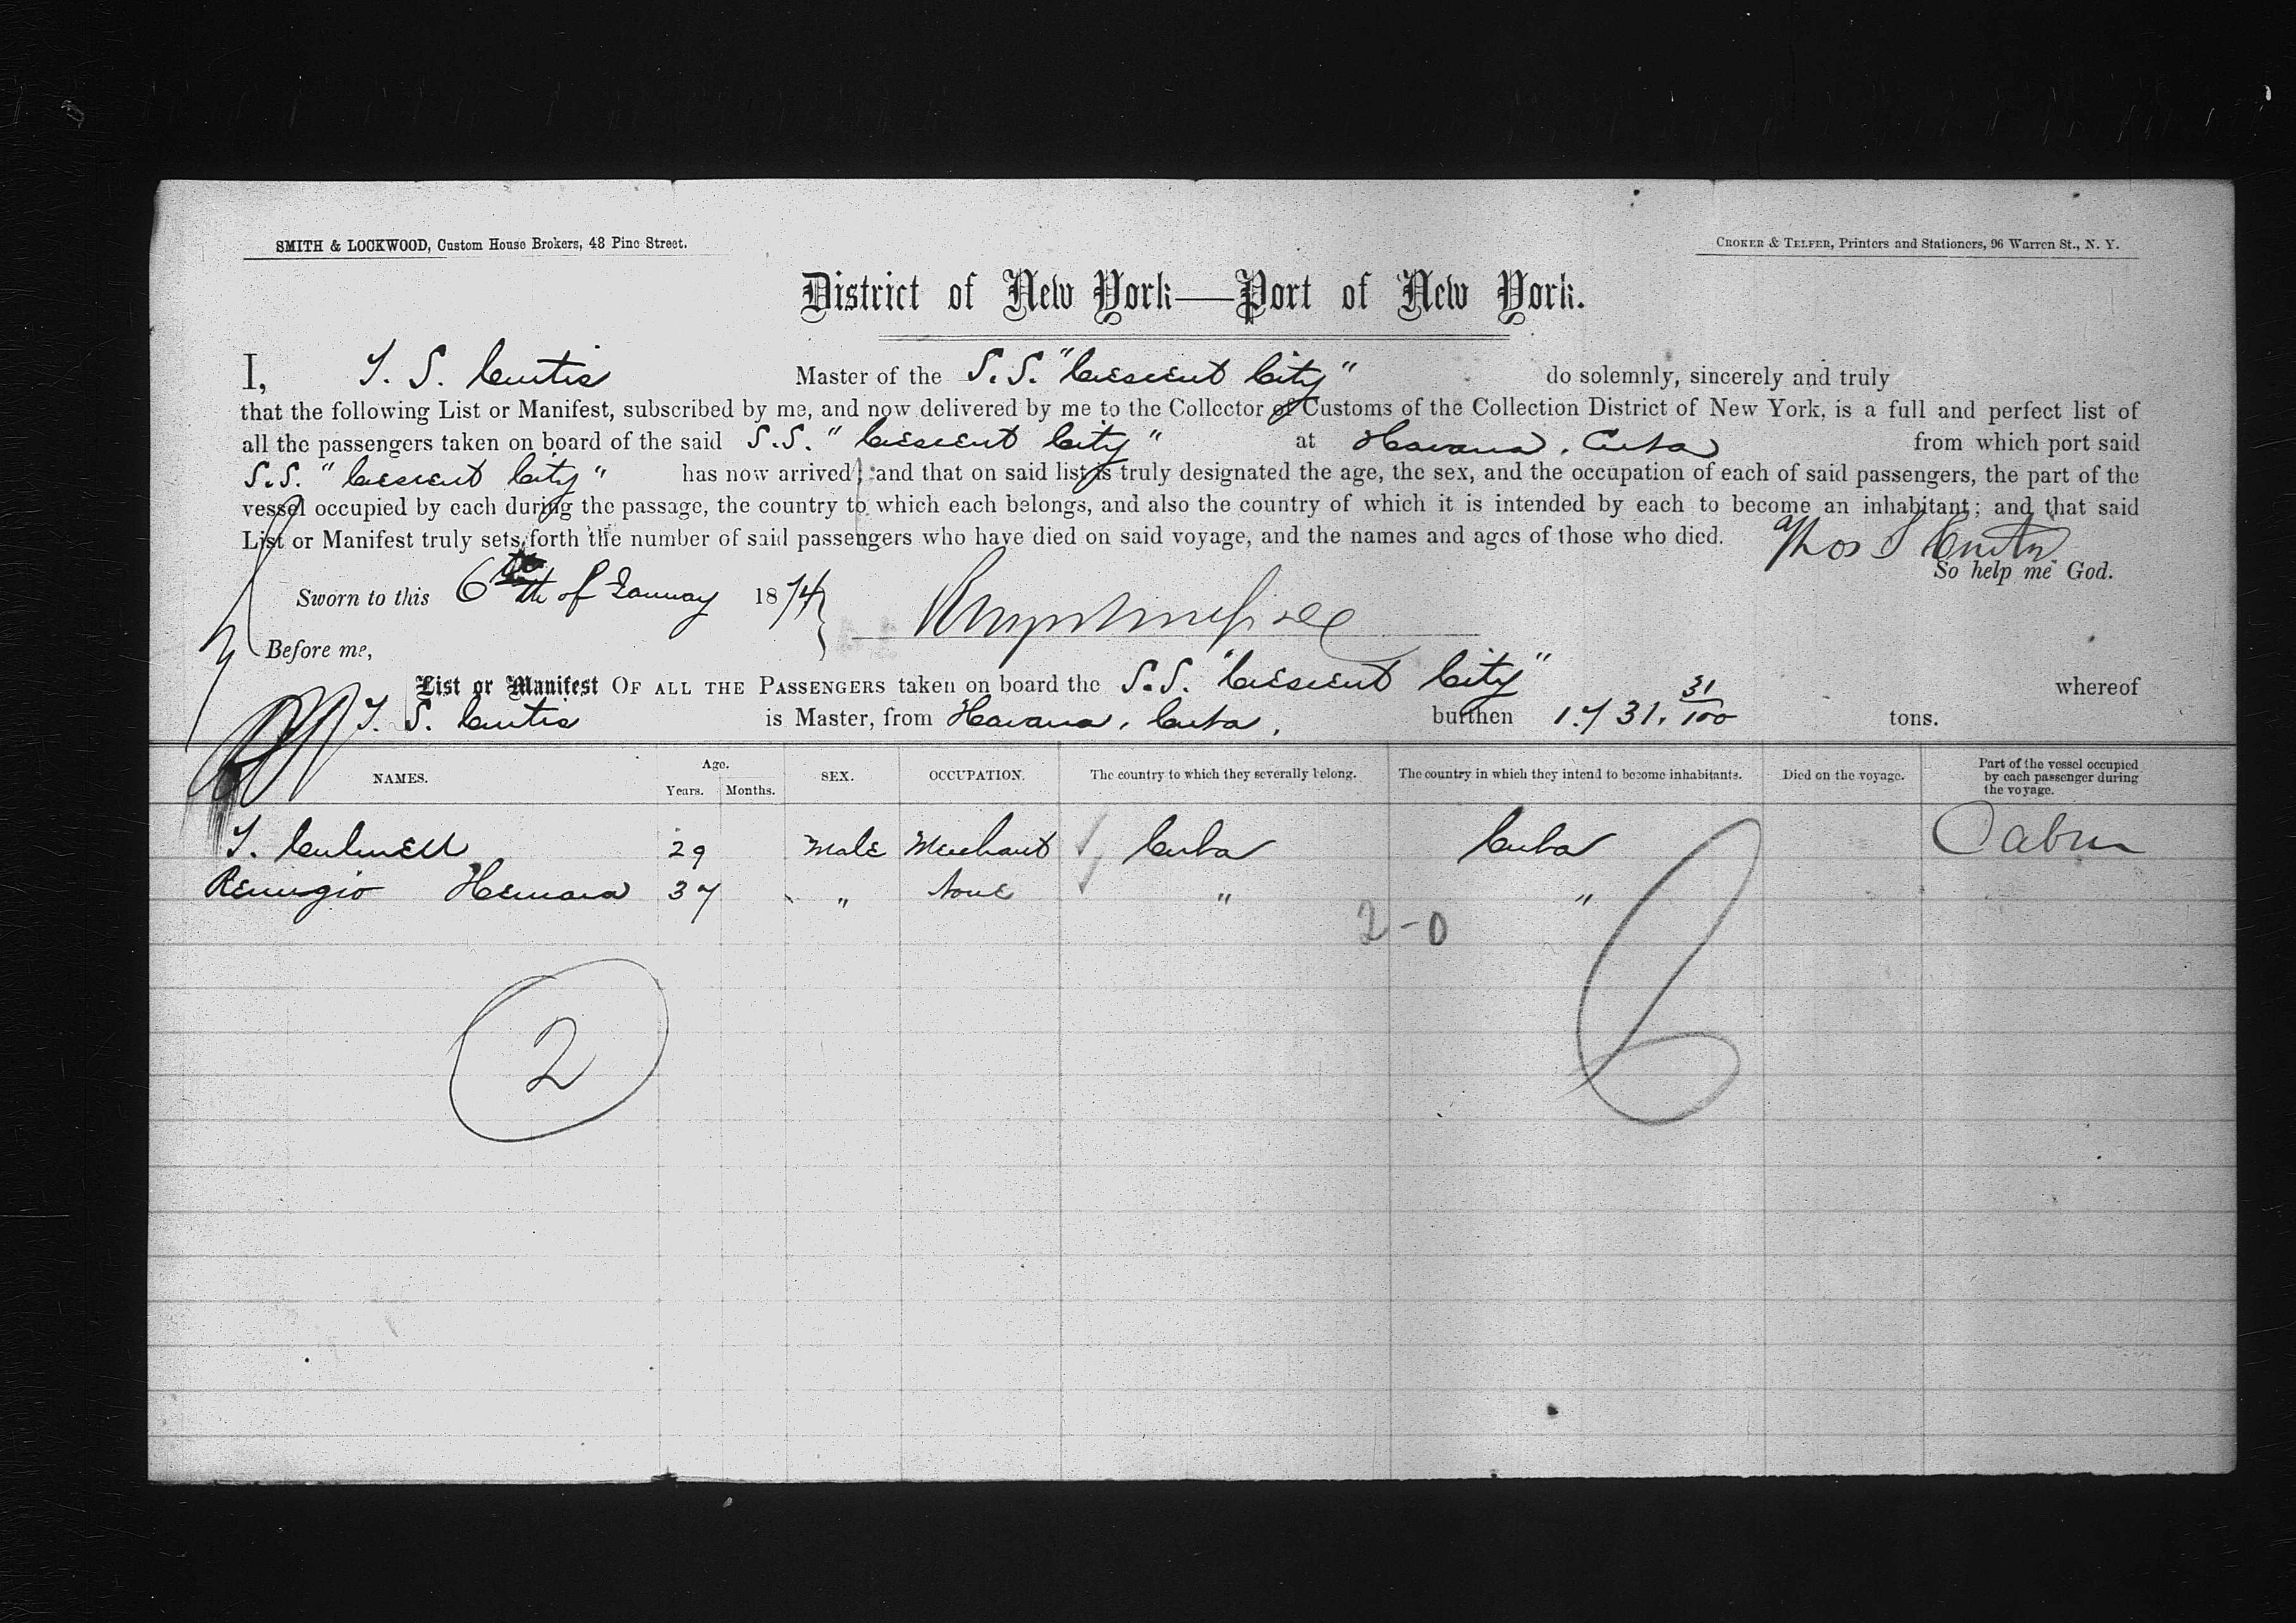 SMITH & LOCKWOOD, Custom House Brokers, 48 Pine Street.
CROKER & TELFER, Printers and Stationers, 96 Warren St., N. Y.
District of New York—Port of New York.
I, T. S. Curtis Master of the S.S. "Crescent City" do solemnly, sincerely and truly
that the following List or Manifest, subscribed by me, and now delivered by me to the Collector of Customs of the Collection District of New York, is a full and perfect list of
all the passengers taken on board of the said S.S. "Crescent City" at Havana, Cuba from which port said
S.S. "Crescent City" has now arrived; and that on said list is truly designated the age, the sex, and the occupation of each of said passengers, the part of the
vessel occupied by each during the passage, the country to which each belongs, and also the country of which it is intended by each to become an inhabitant; and that said
List or Manifest truly sets forth the number of said passengers who have died on said voyage, and the names and ages of those who died. Thos S Curtis
So help me God.
Sworn to this 6th of January 1874
Before me,
List or Manifest OF ALL THE PASSENGERS taken on board the S.S. "Crescent City" whereof
T. S. Curtis is Master, from Havana, Cuba, burthen 1.731. 31/100 tons.
NAMES. Age. Years. Months. SEX. OCCUPATION. The country to which they severally belong. The country in which they intend to become inhabitants. Died on the voyage. Part of the vessel occupied by each passenger during the voyage.
T. 29 Male Merchant Cuba Cuba Cabin
Remugio 37 " None " "
2-0
2